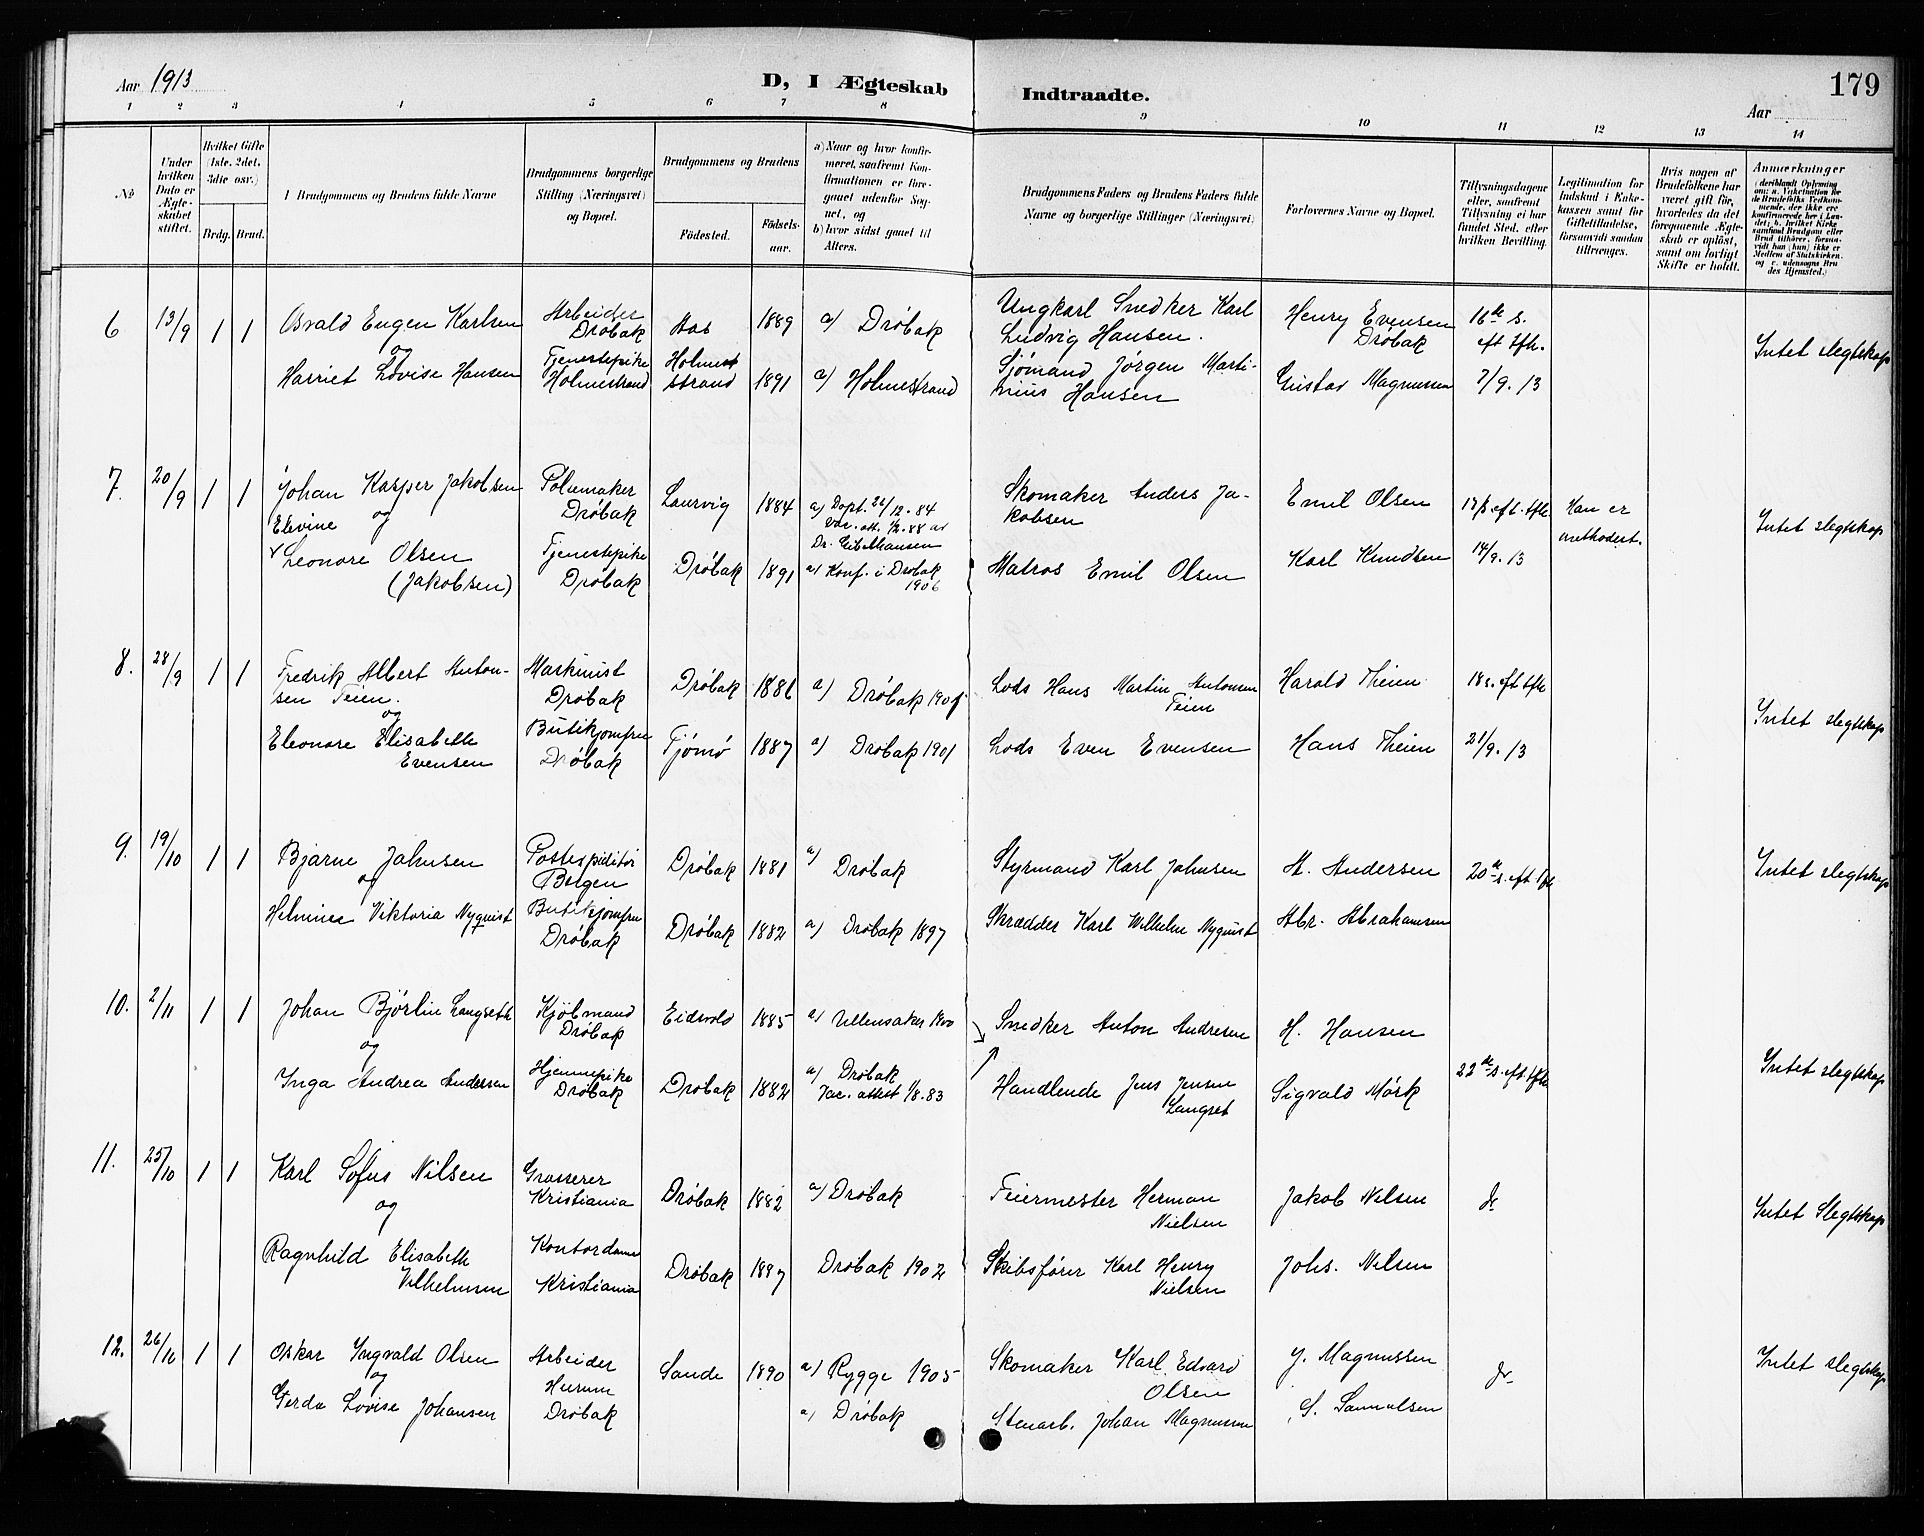 Aar 1913
D, I Ægteskab Indtraadte.
179
Aar
1 2 3 4 5 6 7 8 9 10 11 12 13 14
No
Under hvilken Dato er Ægteskabet stiftet.
Hvilket Gifte (1ste, 2det, 3die osv.)
Brdg. Brud.
Brudgommens og Brudens fulde Navne
Brudgommens borgerlige Stilling (Næringsvei) og Bopæl.
Brudgommens og Brudens
Fødested.
Fødselsaar.
a) Naar og hvor konfirmeret, saafremt Konfirmationen er foregaaet udenfor Sognet, og
b) hvor sidst gaaet til Alters.
Brudgommens Faders og Brudens Faders fulde Navne og borgerlige Stillinger (Næringsvei)
Forlovernes Navne og Bopæl.
Tillysningsdagene eller, saafremt Tillysning ei har fundet Sted, efter hvilken Bevilling.
Legitimation for Indskud i Enkekassen samt for Giftetilladelse, forsaavidt saadan tiltrænges.
Hvis nogen af Brudefolkene har været gift før, hvorledes da det foregaaende Ægteskab er opløst, samt om lovligt Skifte er holdt.
Anmærkninger
6 13/9 1 1
Osvald Eugen Karlsen
og
Harriet Lovise Hansen
Arbeider
Drøbak
Tjenestepike
Holmestrand
Aas
Holmestrand
1889
1891
a) Drøbak
a) Holmestrand
Ungkarl Snedker Karl
Ludvig Hansen.
Sjømand Jørgen Marti-
nius Hansen
Henry Evensen
Drøbak
Gustav Magnussen
16de s.
eft tfh.
7/9. 13
Intet slegtskap
7. 20/9 1 1
Johan Kasper Jakobsen
og
Elevine
Leonore Olsen
(Jakobsen)
Drøbak
Tjenestepike
Drøbak
Laurvig
Drøbak
1884
1891
a) Døpt. 24/12. 84
a) Konf. i Drøbak
1906
Skomaker Anders Ja-
kobsen
Matros Emil Olsen
Emil Olsen
Karl Knudsen
14/9. 13
Han er
methodist.
Intet slegtskap
8. 28/9 1 1
Fredrik Albert Anton-
sen Teien.
og
Eleonore Elisabeth
Evensen
Maskinist
Drøbak
Butikjomfru
Drøbak
Drøbak
Tjømø
1886
1887
a) Drøbak 1901
a) Drøbak 1901
Lods Hans Martin Antonsen
Teien
Lods Even Evensen
Harald Theien
Hans Theien
18s. eft tfh
21/9. 13
Intet slegtskap
9. 19/10 1 1
Bjarne Jahnsen
og
Helmine Viktoria Nyquist
Postexpeditør
Bergen
Butikjomfru
Drøbak
Drøbak
Drøbak
1881
1882
a) Drøbak
a) Drøbak 1897
Styrmand Karl Jahnsen
Skrædder Karl Wilhelm Nyquist
A. Andersen
Abr. Abrahamsen
20de s. eft tfh
Intet slegtskap
10. 2/11 1 1
Johan Bjørlin Langseth
og
Inga Andrea Andersen
Kjøbmand
Drøbak
Hjemmepike
Drøbak
Eidsvold
Drøbak
1885
1882
a) Ullensaker 1900
a) Drøbak
Vac. attest 1/8.83
Snedker Anton Andresen
Handlende Jens Jensen
Langset
H. Hansen
Sigvald Mørk
22de s. eft tfh
Intet slegtskap
11. 25/10 1 1
Karl Sofus Nilsen
og
Ragnhild Elisabeth
Vilhelmine
Grosserer
Kristiania
Kontordame
Kristiania
Drøbak
Drøbak
1882
1887
a) Drøbak
Drøbak 1902
Feiermester Herman
Nielsen
Skibsfører Karl Henry
Nielsen
Jakob Nilsen
Johs. Nilsen
Intet Slegtskap
12. 26/10 1 1
Oskar Ingvald Olsen
og
Gerda Lovise Johansen
Arbeider
Hurum
Drøbak
Sande
1890
a) Rygge 1905
a) Drøbak
Skomaker Karl Edvard
Olsen
Stenarb. Johan Magnussen
J. Magnussen
S. Samuelsen
Intet slegtskap